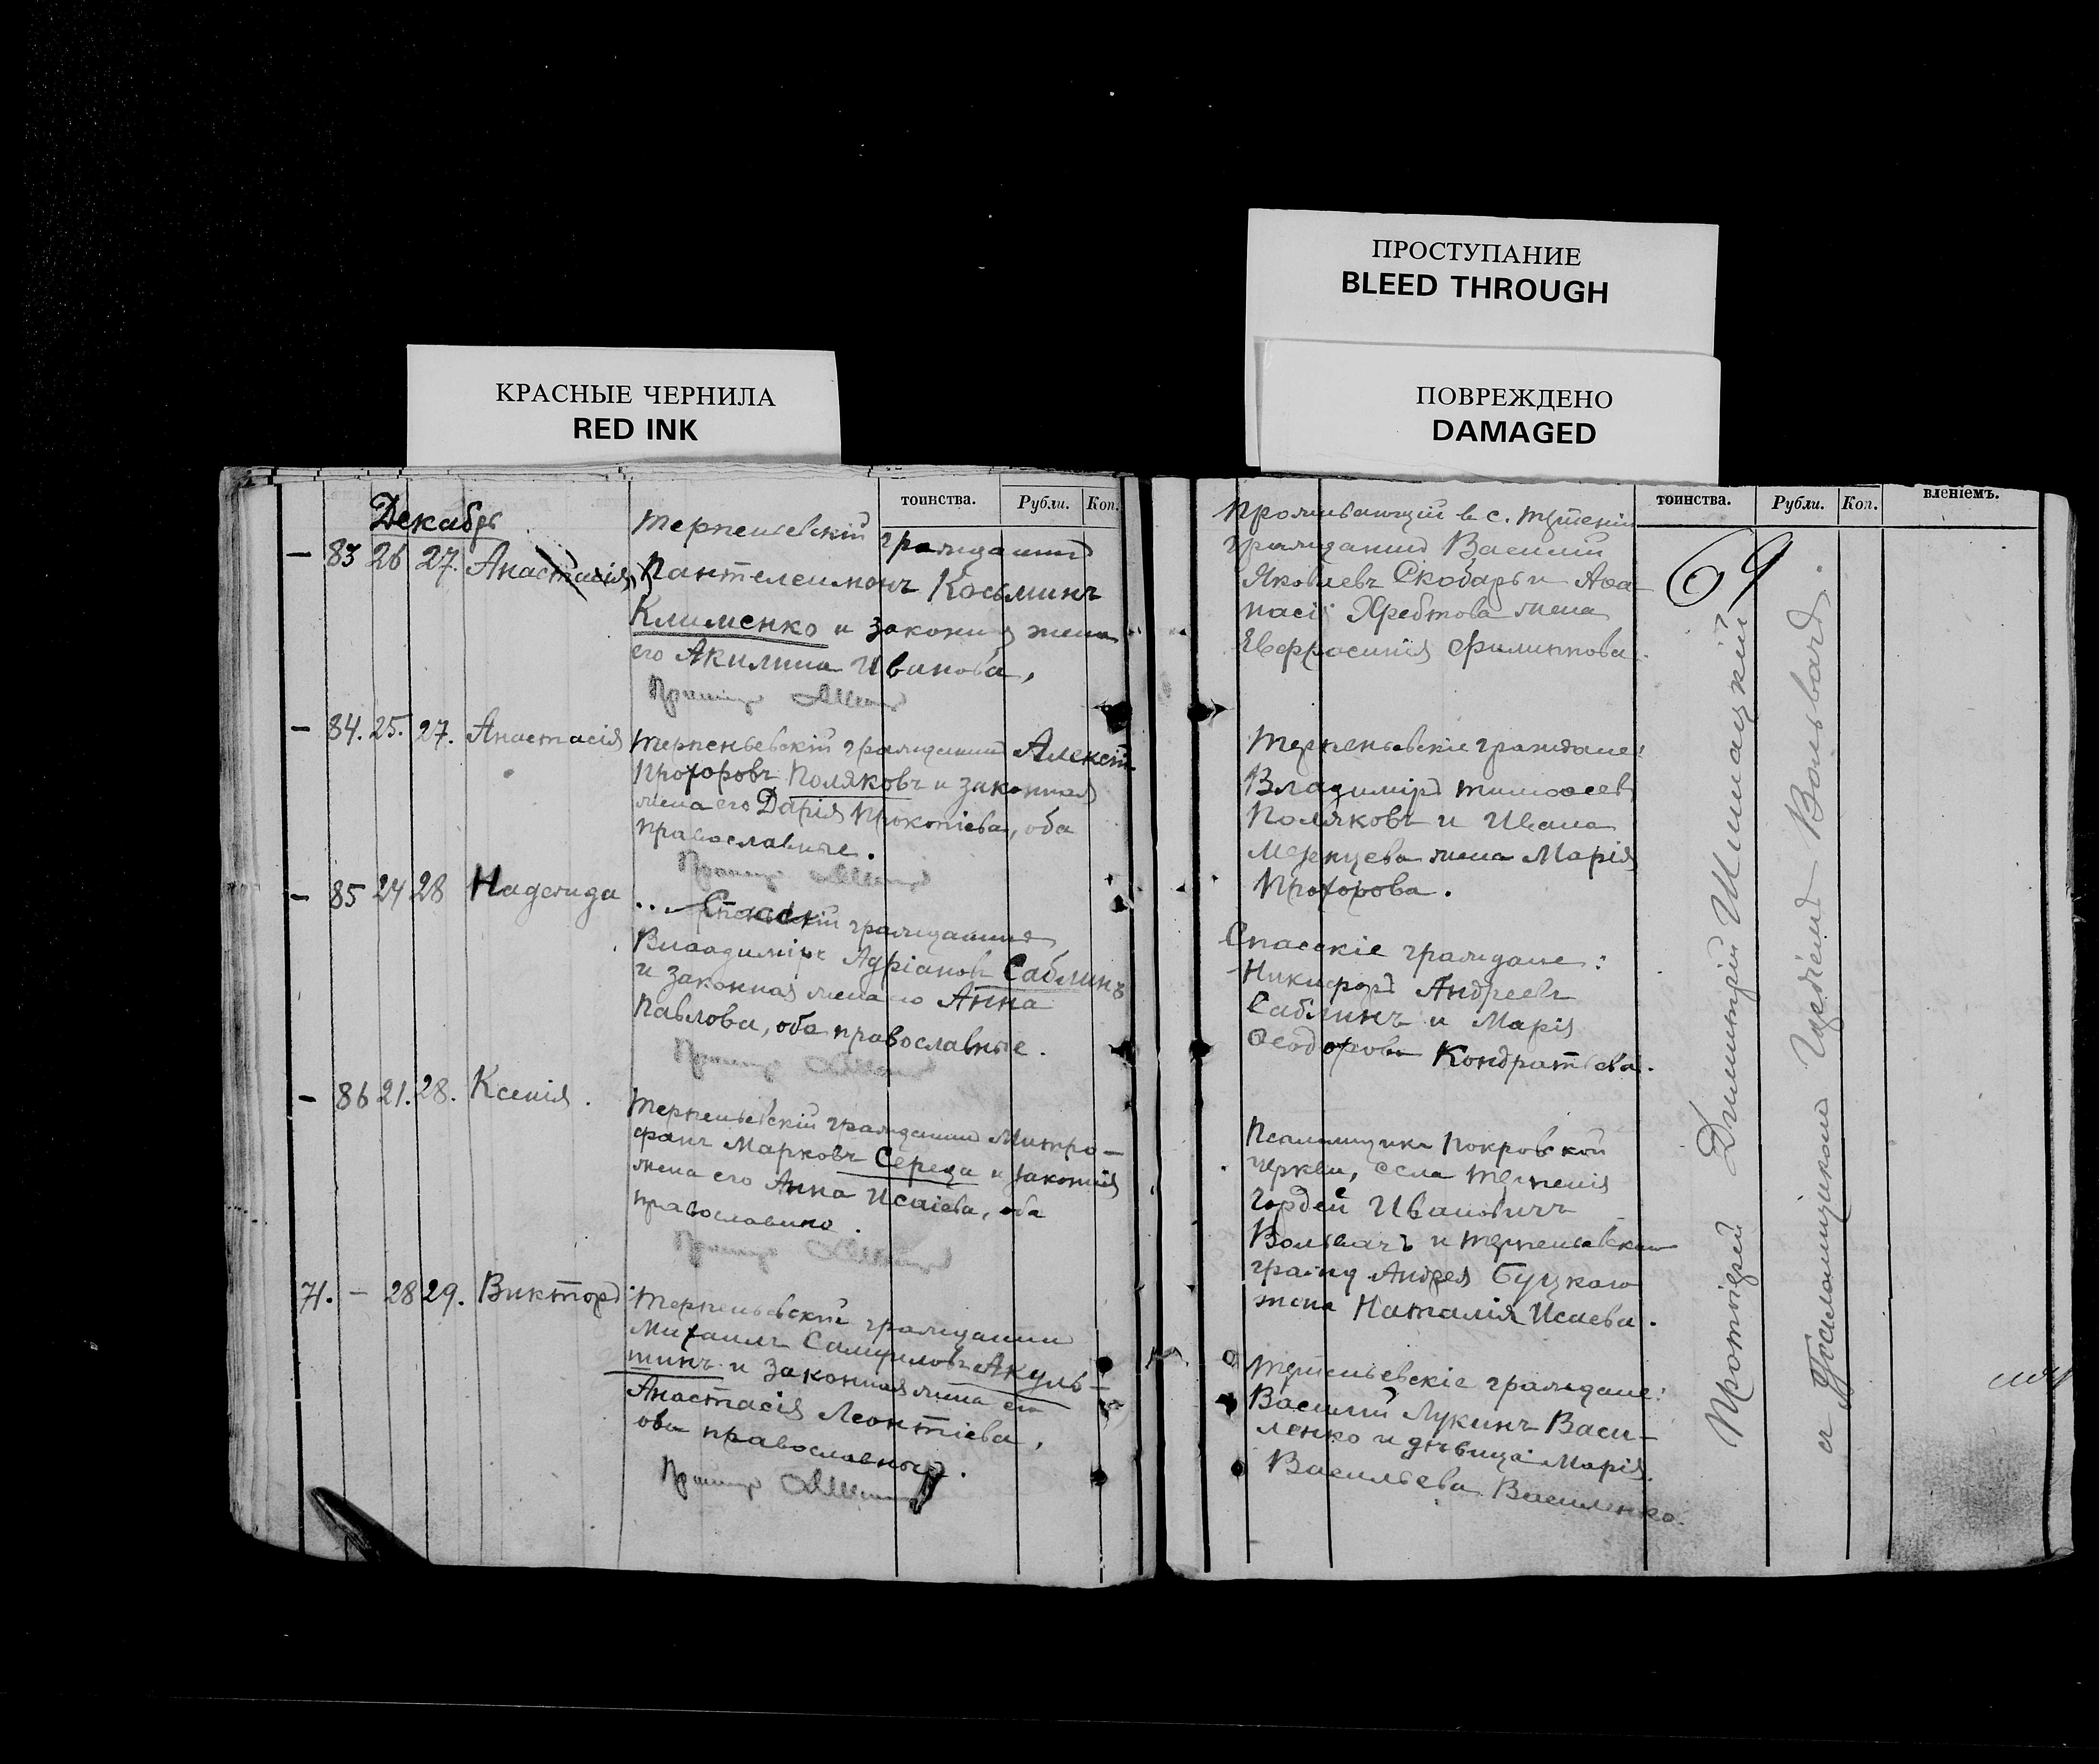 ПРОСТУПАНИЕ
BLEED THROUGH
КРАСНЫЕ ЧЕРНИЛА
RED INK
ПОВРЕЖДЕНО
DAMAGED
тоинства. Рубли. Коп.
Декабрь
— 83 26 27. Анастасія
Терпеньевскій гражданинъ
Пантелеимонъ Косьминъ
Клименко и законная жена
его Акилина Иванова,
— 84. 25. 27. Анастасія
Терпеньевскій гражданинъ Алексій
Прохоровъ Поляковъ и законная
жена его Дарія Прокопіева, оба
православные.
— 85 24 28 Надежда
Спасскій гражданинъ
Владиміръ Адріановъ Саблинъ
и законная жена его Анна
Павлова, оба православные.
— 86 21. 28. Ксенія.
Терпеньевскій гражданинъ Митро—
фанъ Марковъ Середа и законная
жена его Анна Исаіева, оба
православные.
71. — 28 29. Викторъ
Терпеньевскій гражданинъ
Михаилъ Самуиловъ Акуль—
шинъ и законная жена его
Анастасія Леонтіева,
оба православные.
тоинства. Рубли. Коп. вленіемъ.
69
Проживающій в с. Терпеніи
гражданинъ Василій
Яковлевъ Скобарь и Аѳа—
насія Хребтова жена
Евфросинія Филиппова.
Терпеньевскіе граждане:
Владиміръ Тимоѳеевъ
Поляковъ и Ивана
жена Марія
Прохорова.
Спасскіе граждане:
Никифоръ Андреевъ
Саблинъ и Марія
Ѳеодорова Кондратьева.
Псаломщикъ Покровской
церкви, села Терпенія
Гордей Ивановичъ
Вольвачъ и Терпеньевскаго
гражд Андрея Буцкаго
жена Наталія Исаева.
Терпеньевскіе граждане:
Василій Лукинъ Васи—
ленко и дѣвица Марія
Васильева Василенко.
Протоіерей Димитрій
Псаломщикъ Вольвачъ.